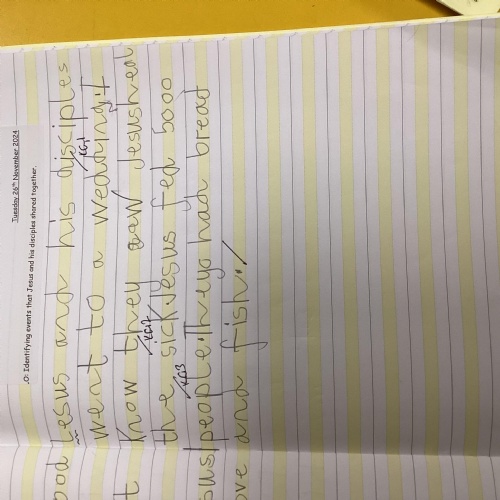 Tuesday 26th November 2024
LO: Identifying events that Jesus and his disciples shared together.
Jesus and his disciples
KG1
went to a wedding I
Know they saw Jesus heal
KG2
the sick. Jesus fed 5000
KG3
people. They had bread
and fish.